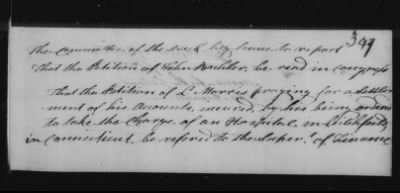 347
the Committee of the week beg leave to report
that the Petition of John Kachler, be read in Congress
that the Petition of Lt Morris praying for a settle
ment of his Accounts, incured by his being ordered
to take the Charge of an Hospital, in Litchfield,
in Connecticut, be refered to the Super.t of Finance